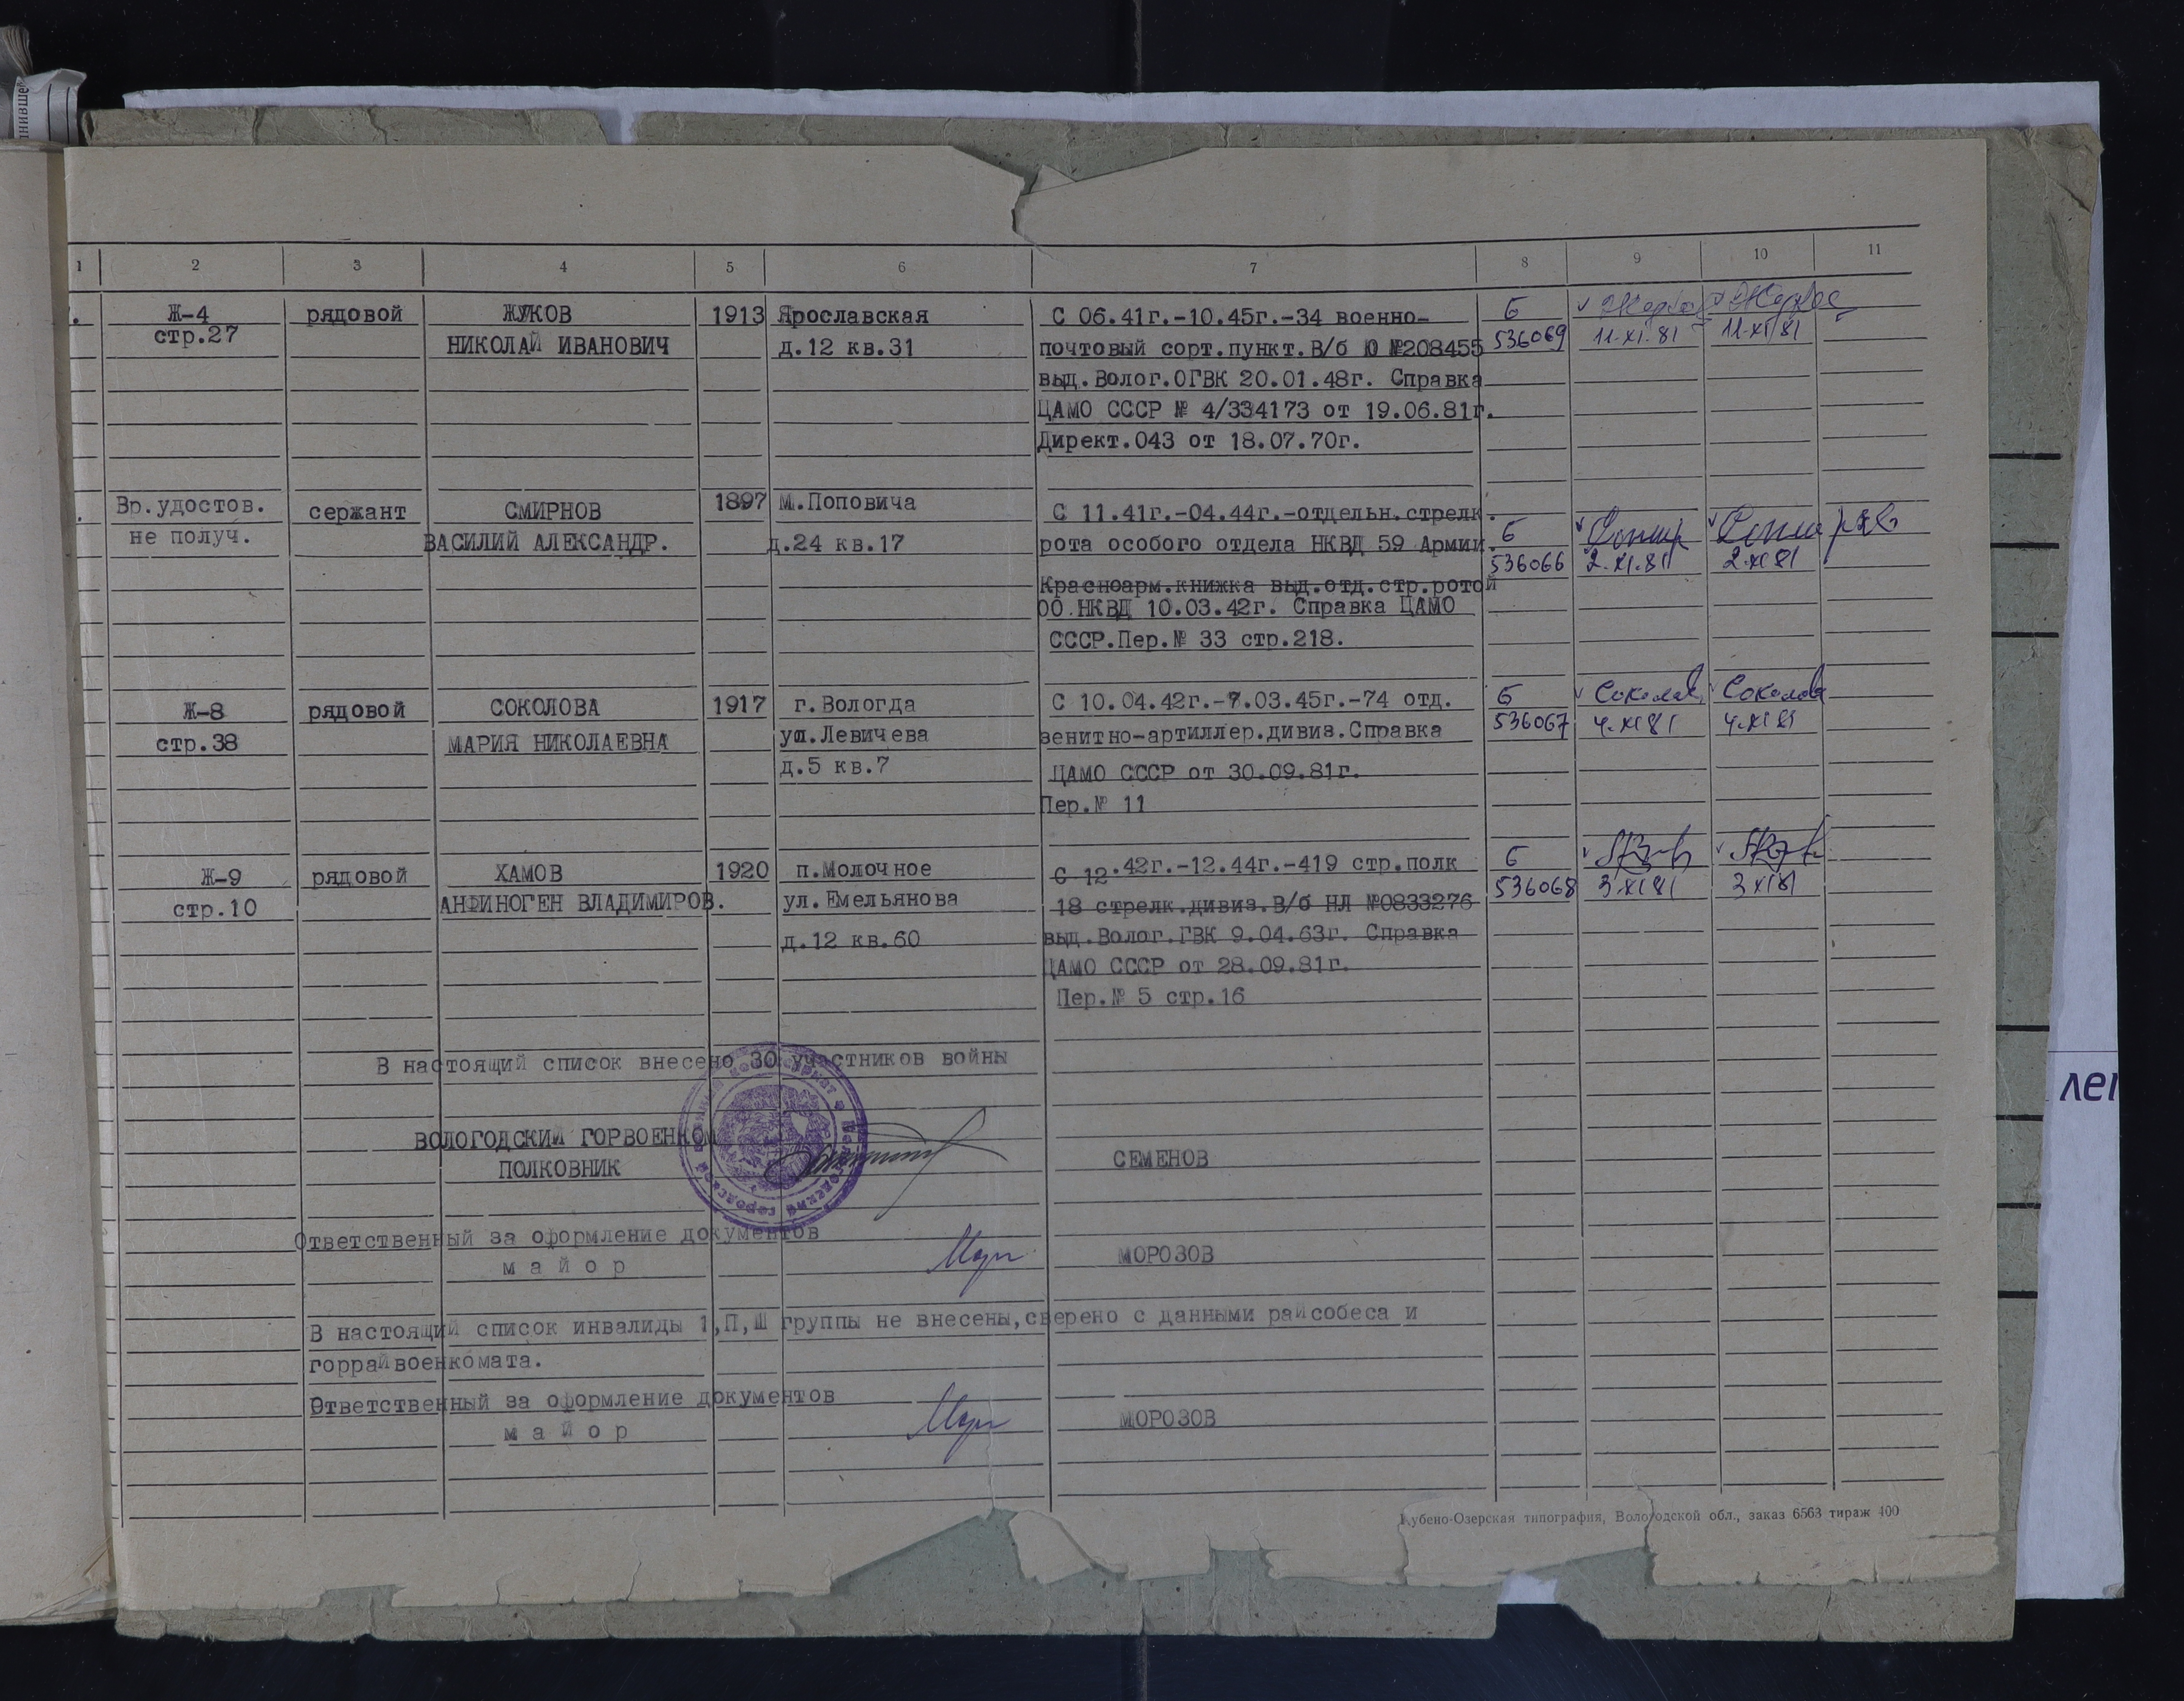 1 2 3 4 5 6 7 8 9 10 11
Ж-4 рядовой ЖУКОВ 1913 Ярославская С 06.41г.-10.45г.-34 военно- Б
стр.27 НИКОЛАЙ ИВАНОВИЧ д.12 кв.31 почтовый сорт.пункт.В/б Ю №208455 536069 11.XI.81 11.XI.81
выд.Волог.ОГВК 20.01.48г. Справка
ЦАМО СССР № 4/334173 от 19.06.81г.
Директ.043 от 18.07.70г.
Вр.удостов. сержант СМИРНОВ 1897 М.Поповича С 11.41г.-04.44г.-отдельн.стрелк. Б
не получ. ВАСИЛИЙ АЛЕКСАНДР. д.24 кв.17 рота особого отдела НКВД 59 Армии. 536066 2.XI.81 2.XI 81
Красноарм.книжка выд.отд.стр.ротой
ОО НКВД 10.03.42г. Справка ЦАМО
СССР.Пер.№ 33 стр.218.
Ж-8 рядовой СОКОЛОВА 1917 г.Вологда С 10.04.42г.-7.03.45г.-74 отд. Б Соколов Соколова
стр.38 МАРИЯ НИКОЛАЕВНА ул.Левичева зенитно-артиллер.дивиз.Справка 536067 4.XI 81 4.XI 81
д.5 кв.7 ЦАМО СССР от 30.09.81г.
Пер.№ 11
Ж-9 рядовой ХАМОВ 1920 п.Молочное С 12.42г.-12.44г.-419 стр.полк Б
стр.10 АНФИНОГЕН ВЛАДИМИРОВ. ул.Емельянова 18 стрелк.дивиз.В/б НЛ №0833276 536068 3.XI 81 3 XI 81
д.12 кв.60 выд.Волог.ГВК 9.04.63г. Справка
ЦАМО СССР от 28.09.81г.
Пер.№ 5 стр.16
В настоящий список внесено 30 участников войны
ВОЛОГОДСКИЙ ГОРВОЕНКОМ
ПОЛКОВНИК СЕМЕНОВ
Ответственный за оформление документов
м а й о р МОРОЗОВ
В настоящий список инвалиды 1,П,Ш группы не внесены,сверено с данными райсобеса и
горрайвоенкомата.
Ответственный за оформление документов
м а й о р МОРОЗОВ
Кубено-Озерская типография, Вологодской обл., заказ 6563 тираж 400